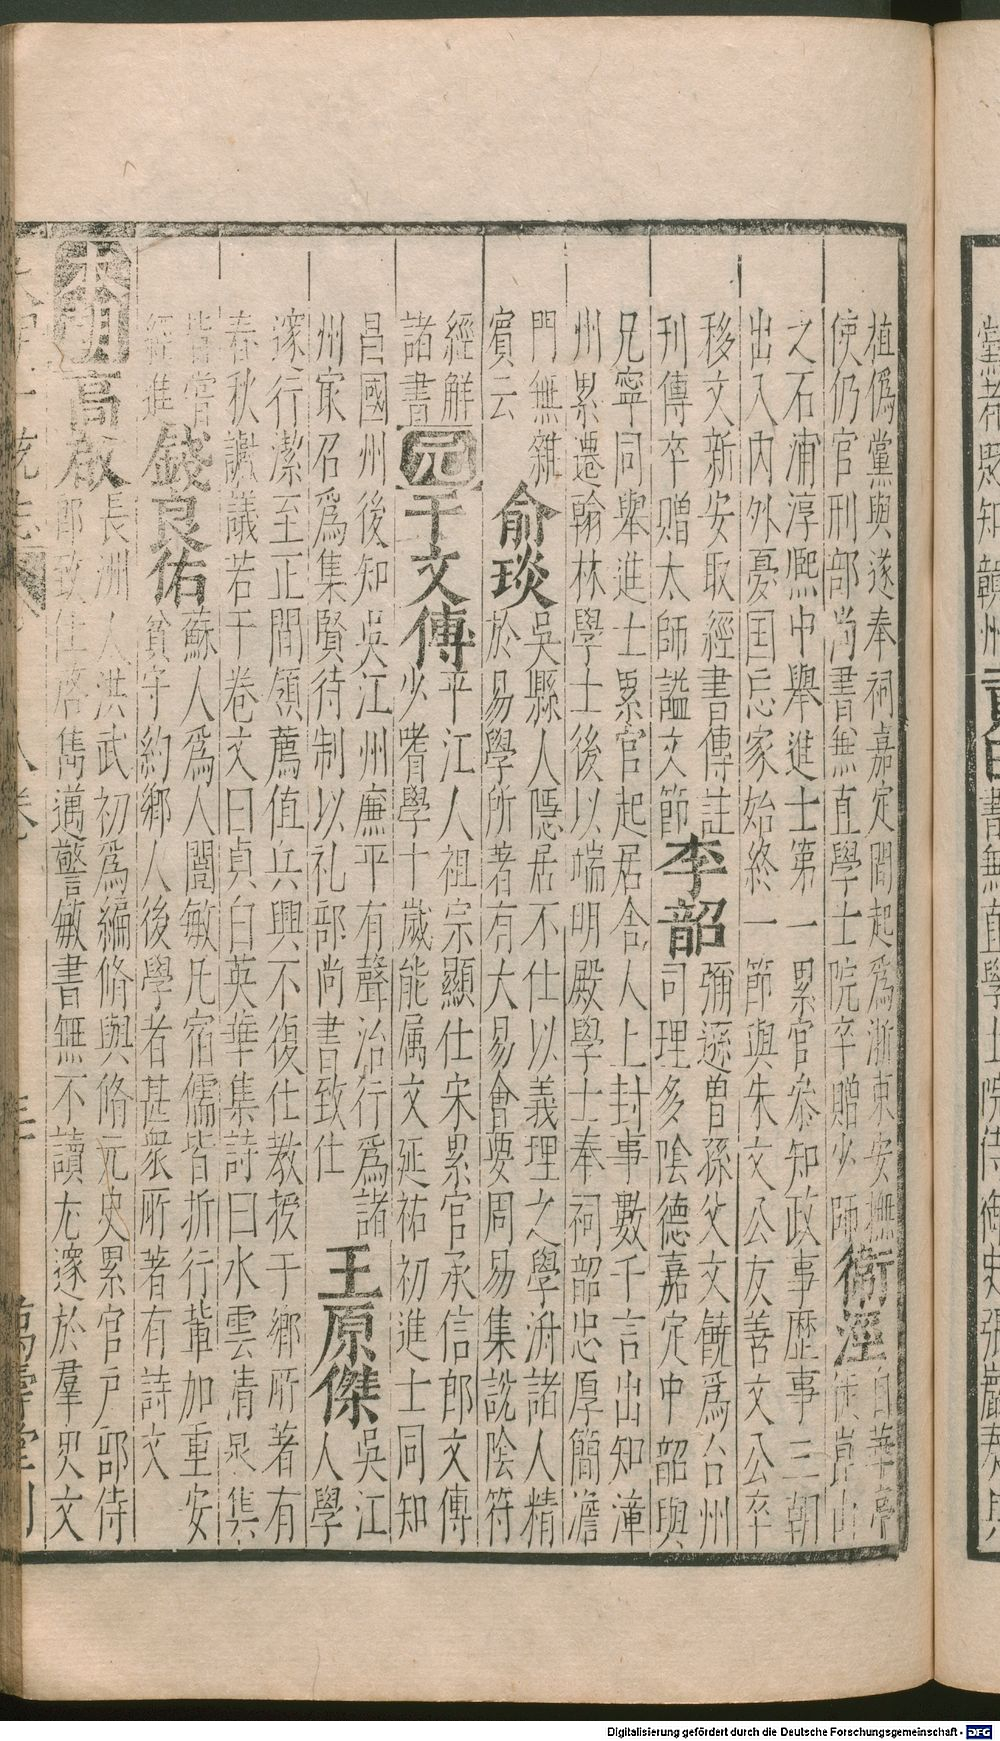 植僞黨與遂奉祠嘉定間起爲浙東安撫
使仍官刑部尚書無直學士院卒贈少師
衞涇
自華亭
徙崑山
之石浦淳熙中舉進士第一累官叅知政事歷事三朝
出入內外憂囯忘家始終一節與朱文公友善文公卒
移文新安取經書傳註
刊傳卒贈太師謚文節
李韶
彌遜曾孫父文饒爲台州
司理多陰德嘉定中韶與
兄寧同舉進士累官起居舍人上封事數千言出知漳
州累遷翰林學士後以端明殿學士奉祠韶忠厚簡澹
門無雜
賓云
俞琰
吳縣人隱居不仕以義理之學淑諸人精
於易學所著有大易會要周易集說陰符
經解
諸書
元
干文傳
平江人祖宗顯仕宋累官承信郎文傳
少嗜學十歲能属文延祐初進士同知
昌國州後知吳江州廉平有聲治行爲諸
州㝡召爲集賢待制以礼部尚書致仕
王原傑
吳江
人學
邃行潔至正間領薦值兵興不復仕教授于鄉所著有
春秋讞議若干卷文曰貞白英華集詩曰水雲清泉集
皆嘗
經進
錢良佑
蘇人爲人誾敏凡宿儒皆折行軰加重安
貧守約鄉人後學者甚衆所著有詩文
本朝
高啟
長洲人洪武初爲編脩與脩元史累官戶部侍
郎致仕啓雋邁警敏書無不讀尤邃於羣史文
一統志 八卷 三十 萬壽堂刊
Digitalisierung gefördert durch die Deutsche Forschungsgemeinschaft - DFG